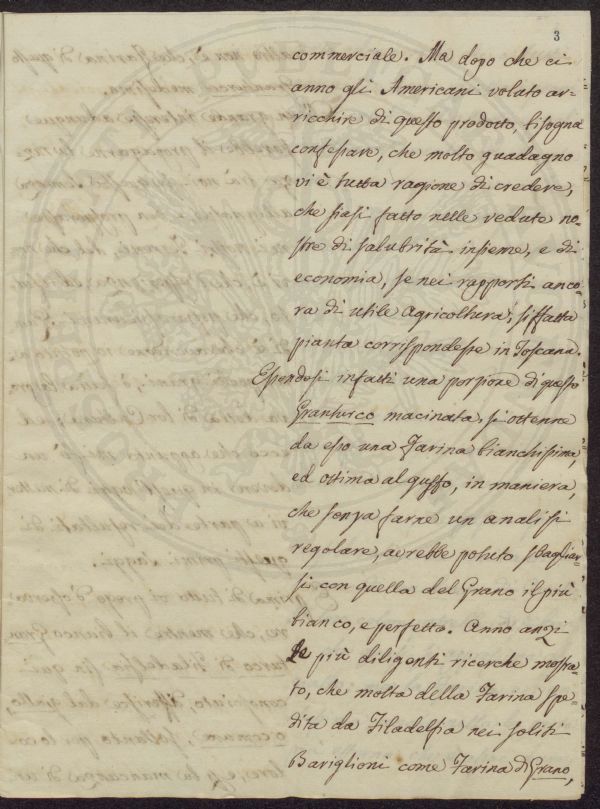 3
commerciale. Ma dopo che ci
anno gli Americani voluto ar-
ricchire di questo prodotto, bisogna
confessare, che molto guadagno
vi è tutta ragione di credere,
che siasi fatto nelle vedute no-
stre di salubrità insieme, e di
economia, se nei rapporti anco-
ra di utile Agricoltura, siffatta
pianta corrispondesse in Toscana.
Essendosi infatti una porzione di questo
Granturco macinata, si ottenne
da esso una Farina bianchissima,
ed ottima al gusto, in maniera,
che senza farne un analisi
regolare, averebbe potuto sbagliar-
si con quella del Grano il più
bianco, e perfetto. Anno anzi
le più diligenti ricerche mostra-
to, che molta della Farina spe-
dita da Filadelfia nei soliti
Bariglioni come Farina di Grano,